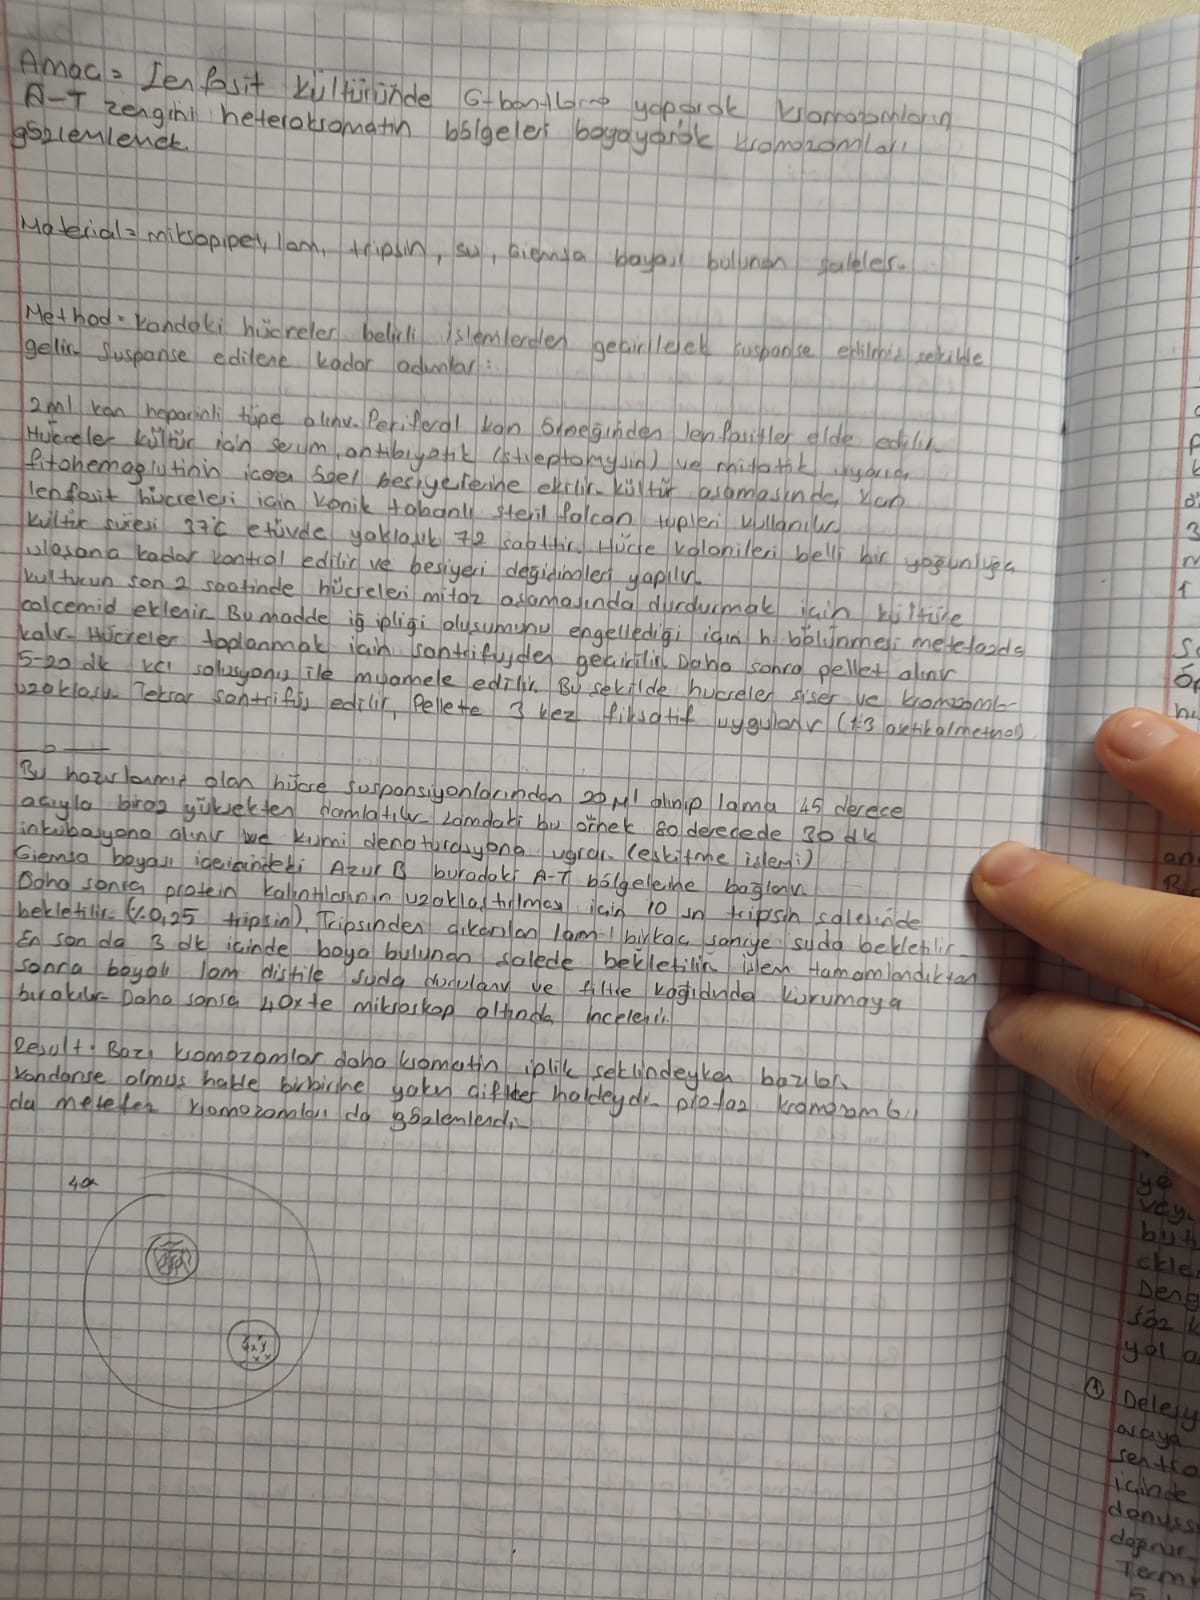 Amaç= Lenfosit kültüründe G-bantlama yaparak kromozomların
A-T zengini heterokromatin bölgeleri boyayarak kromozomları
gözlemlemek.
Material= mikropipet, lam, tripsin, su, Giemsa boyası bulunan şaleler.
Method= Kandaki hücreler belirli işlemlerden geçirilerek suspanse edilmiş şekilde
gelir. Suspanse edilene kadar adımlar:
2ml kan heparinli tüpe alınır. Periferal kan örneğinden lenfositler elde edilir.
Hücreler kültür için serum, antibiyotik (streptomysin) ve mitotik uyarıcı
fitohemaglutinin içeren özel besiyerlerine ekilir. Kültür aşamasında, kan
lenfosit hücreleri için konik tabanlı steril falcon tüpleri kullanılır.
Kültür süresi 37°C etüvde yaklaşık 72 saattir. Hücre kolonileri belli bir yoğunluğa
ulaşana kadar kontrol edilir ve besiyeri değişimleri yapılır.
Kulturun son 2 saatinde hücreleri mitoz aşamasında durdurmak için kültüre
colcemid eklenir. Bu madde iğ ipliği oluşumunu engellediği için h. bölünmesi metafazda
kalır. Hücreler toplanmak için santrifujden geçirilir. Daha sonra pellet alınır
5-20 dk KCl solusyonu ile muamele edilir. Bu şekilde hücreler şişer ve kromozoml-
uzaklaşır. Tekrar santrifüj edilir, Pellete 3 kez fiksatif uygulanır (1:3 asetikal metnol)
Bu hazırlanmış olan hücre suspansiyonlarından 20 µl alınıp lama 45 derece
açıyla biraz yüksekten damlatılır. Lamdaki bu örnek 80 derecede 30 dk
inkübasyona alınır ve kısmi denaturasyona uğrar. (eskitme işlemi)
Giemsa boyası içerisindeki Azur B buradaki A-T bölgelerine bağlanır.
Daha sonra protein kalıntılarının uzaklaştırılması için 10 sn tripsin şalesinde
bekletilir. (%0,25 tripsin) Tripsinden çıkarılan lam birkaç saniye suda bekletilir.
En son da 3 dk içinde boya bulunan şalede bekletilir. İşlem tamamlandıktan
sonra boyalı lam distile suda durulanır ve filtre kağıdında kurumaya
bırakılır. Daha sonra 40x te mikroskop altında incelenir.
Result= Bazı kromozomlar daha kromatin iplik şeklindeyken bazıları
kondanse olmuş halde birbirine yakın çiftler haldeydi. profaz kromozomları
da metefez kromozomları da gözlemlendi.
40x
ye
vey
bu
ekle
Deng
söz k
yol a
① Delesy
araya
sentro
içinde
dönüşs
doğnar.
Term